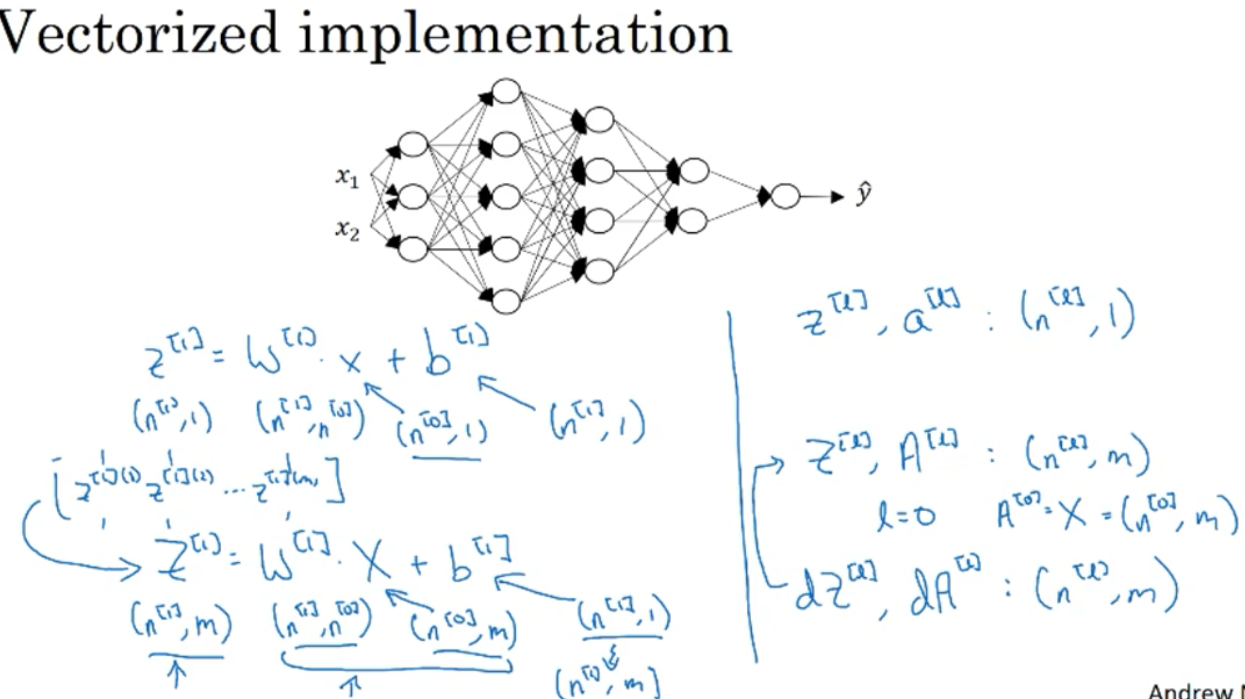 Vectorized implementation
x₁
x₂
ŷ
z^[1] = W^[1] · x + b^[1]
(n^[1], 1) (n^[1], n^[0]) (n^[0], 1) (n^[1], 1)
[ z^[1](1) z^[1](2) ... z^[1](m) ]
Z^[1] = W^[1] · X + b^[1]
(n^[1], m) (n^[1], n^[0]) (n^[0], m) (n^[1], 1)
(n^[1], m)
z^[l], a^[l] : (n^[l], 1)
Z^[l], A^[l] : (n^[l], m)
l=0 A^[0] = X = (n^[0], m)
dZ^[l], dA^[l] : (n^[l], m)
Andrew